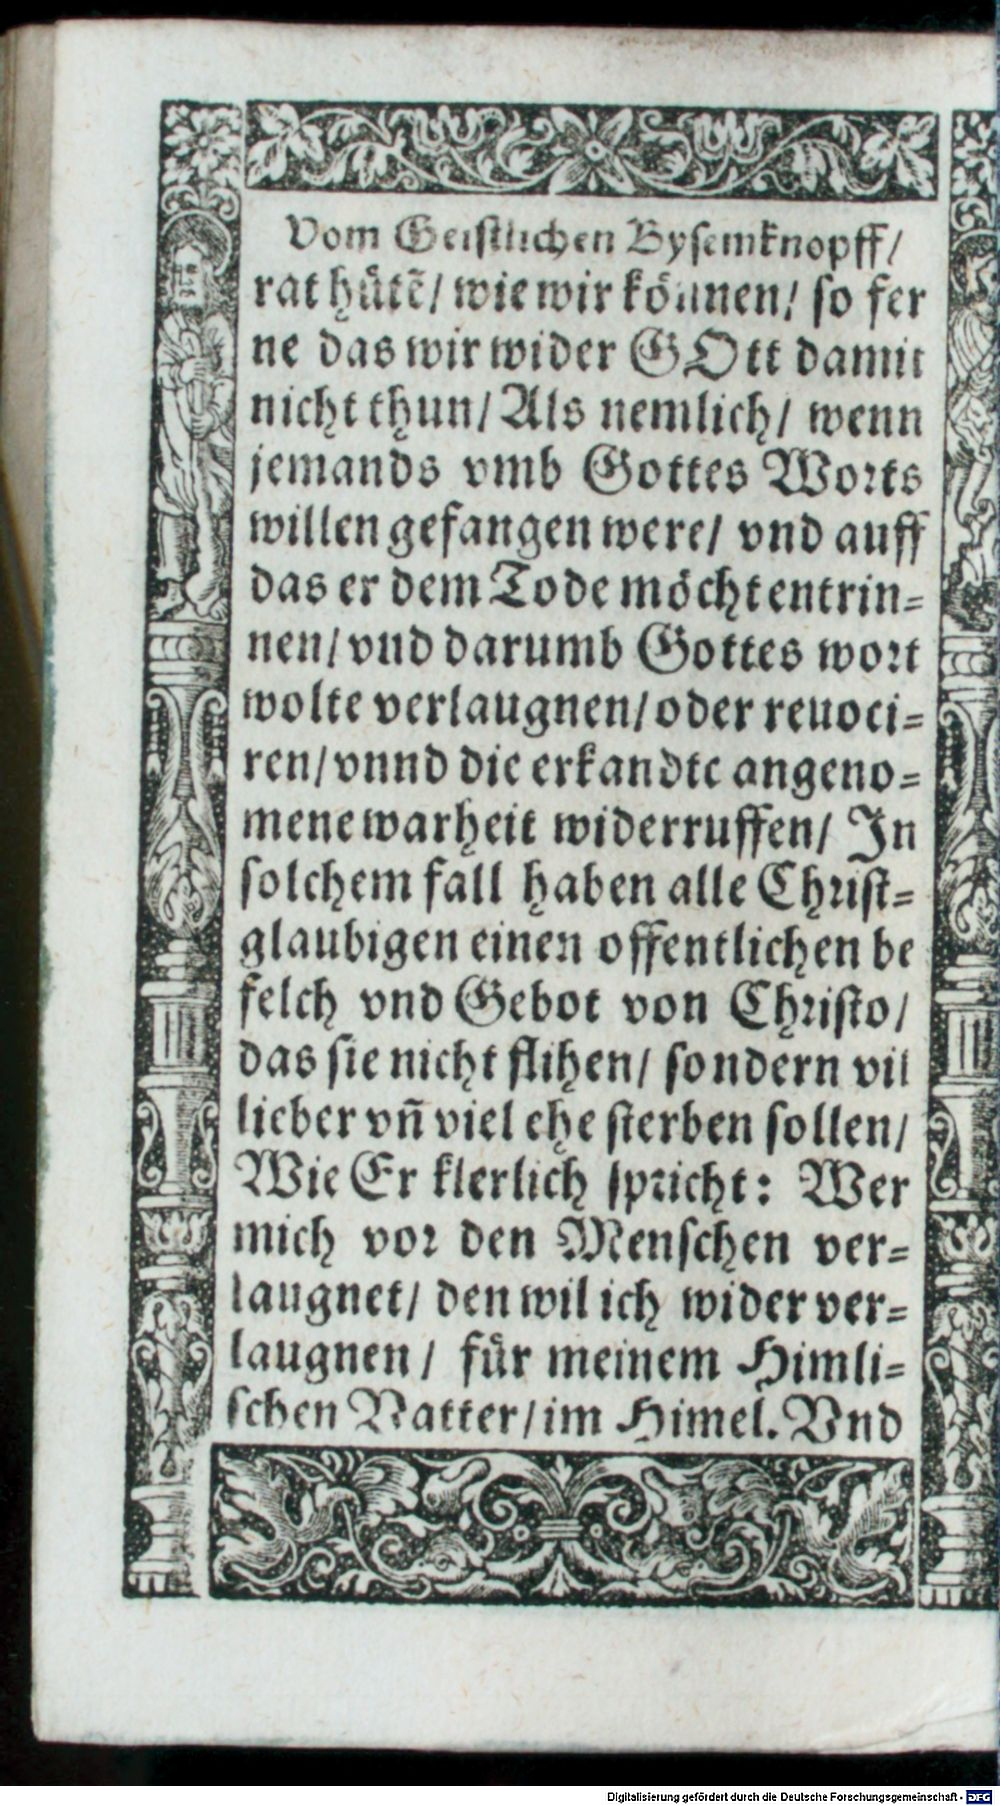 Vom Geistlichen Bysemknopff/
rat hütẽ/ wie wir können/ so fer
ne das wir wider GOtt damit
nicht thun/ Als nemlich/ wenn
jemands vmb Gottes Worts
willen gefangen were/ vnd auff
das er dem Tode möcht entrin=
nen/ vud darumb Gottes wort
wolte verlaugnen/ oder reuoci=
ren/ vnnd die erkandte angeno=
mene warheit widerruffen/ In
solchem fall haben alle Christ=
glaubigen einen offentlichen be
felch vnd Gebot von Christo/
das sie nicht flihen/ sondern vil
lieber vñ viel ehe sterben sollen/
Wie Er klerlich spricht: Wer
mich vor den Menschen ver=
laugnet/ den wil ich wider ver=
laugnen/ für meinem Himli=
schen Vatter/ im Himel. Vnd
Digitalisierung gefördert durch die Deutsche Forschungsgemeinschaft - DFG